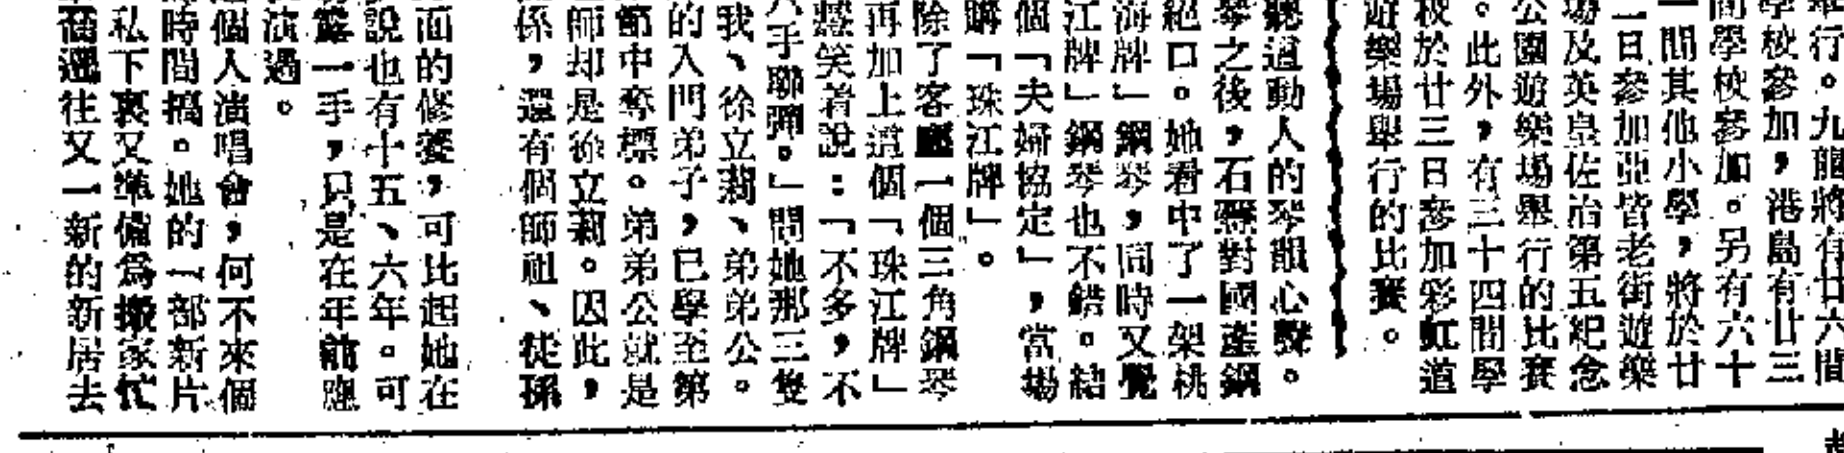 舉行。九龍將有廿六間
學校參加，港島有廿三
間學校參加。另有六十
一間其他小學，將於廿
二日參加亞皆老街遊樂
場及英皇佐治第五紀念
公園遊樂場舉行的比賽
。此外，有三十四間學
校於廿三日參加彩虹道
遊樂場舉行的比賽。
聽過動人的琴韻心聲。
琴之後，石慧對國產鋼
絕口。她看中了一架桃
海牌」鋼琴，同時又覺
江牌」鋼琴也不錯。結
個「夫婦協定」，當場
購「珠江牌」。
除了客廳一個三角鋼琴
再加上這個「珠江牌」
慧笑着說：「不多，不
八手聯彈。」問她那三隻
我、徐立莉、弟弟公。
的入門弟子，已學至第
節中奪標。弟弟公就是
師却是徐立莉。因此，
係，還有個師祖、徒孫
面的修養，可比起她在
說也有十五、六年。可
露一手，只是在年前應
演過。
個人演唱會，何不來個
時間搞。她的一部新片
私下裏又準備爲搬家忙
喬遷往又一新的新居去